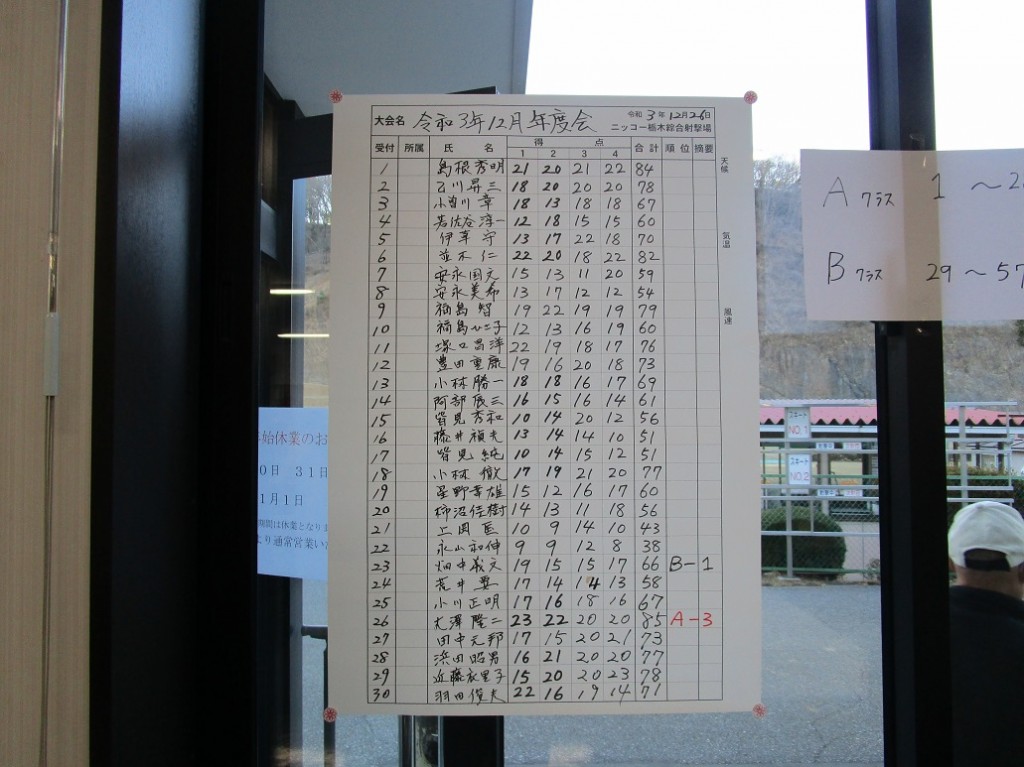 大会名 令和3年12月年度会 令和 3年 12月26日
ニッコー栃木綜合射撃場
受付 所属 氏 名 得 点 合計 順位 摘要
1 2 3 4
1 島根秀明 21 20 21 22 84
2 石川昇三 18 20 20 20 78
3 小曽川章 18 13 18 18 67
4 岩佐谷淳一 12 18 15 15 60
5 伊革守 13 17 22 18 70
6 並木仁 22 20 18 22 82
7 安永国文 15 13 11 20 59
8 安永美希 13 17 12 12 54
9 福島智 19 22 19 19 79
10 福島 12 13 16 19 60
11 塚口昌洋 22 19 18 17 76
12 豊田重康 19 16 20 18 73
13 小林勝一 18 18 16 17 69
14 阿部辰三 16 15 16 14 61
15 皆見秀和 10 14 20 12 56
16 藤井禎光 13 14 14 10 51
17 皆見純 10 14 15 12 51
18 小林徹 17 19 21 20 77
19 星野幸雄 15 12 16 17 60
20 柿沼佳樹 14 13 11 18 56
21 上岡匡 10 9 14 10 43
22 永山和伸 9 9 12 8 38
23 畑中義文 19 15 15 17 66 B-1
24 荒井 17 14 14 13 58
25 小川正明 17 16 18 16 67
26 大澤隆二 23 22 20 20 85 A-3
27 田中元邦 17 15 20 21 73
28 浜田昭男 16 21 20 20 77
29 近藤衣里子 15 20 20 23 78
30 羽田俊夫 22 16 19 14 71
天候
気温
風速
A クラス 1 ～
B クラス 29 ～ 57
始休業のお
0日 31日
1月1日
期間は休業となりま
より通常営業い
NO.1
NO.2